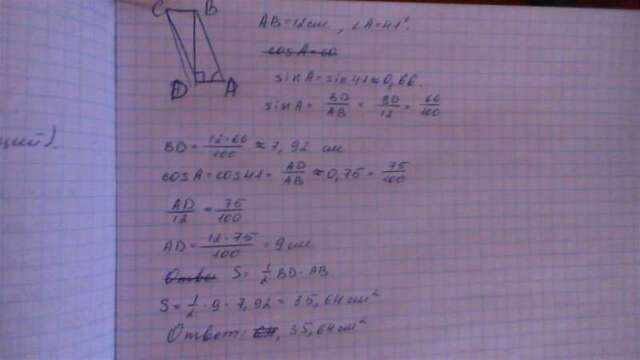 C B
D A
AB=12см, ∠A=41°.
cosA=co
sinA=sin41≈0,66.
sinA= BD/AB = BD/12 = 66/100
щий).
BD= 12·66/100 ≈ 7,92 см
cosA=cos41= AD/AB ≈0,75= 75/100
AD/12 = 75/100
AD= 12·75/100 =9см
Ответ S= 1/2 BD·AB.
S= 1/2 ·9·7,92=35,64см²
Ответ: 35,64см²